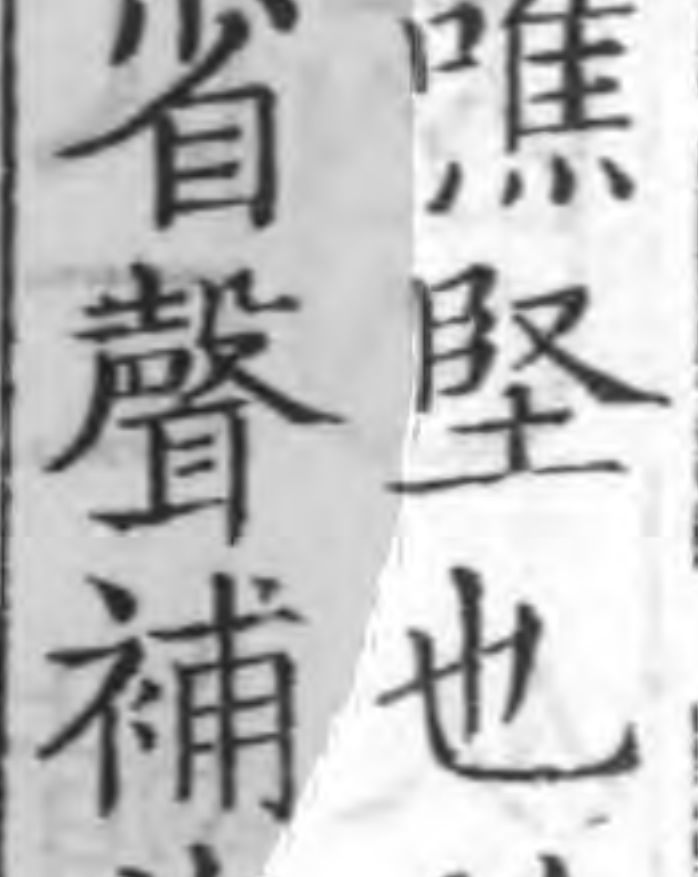 噍堅也
省聲補